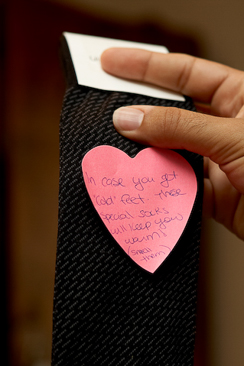 In case you get
"Cold" feet - These
special socks
will keep you
warm!
them)